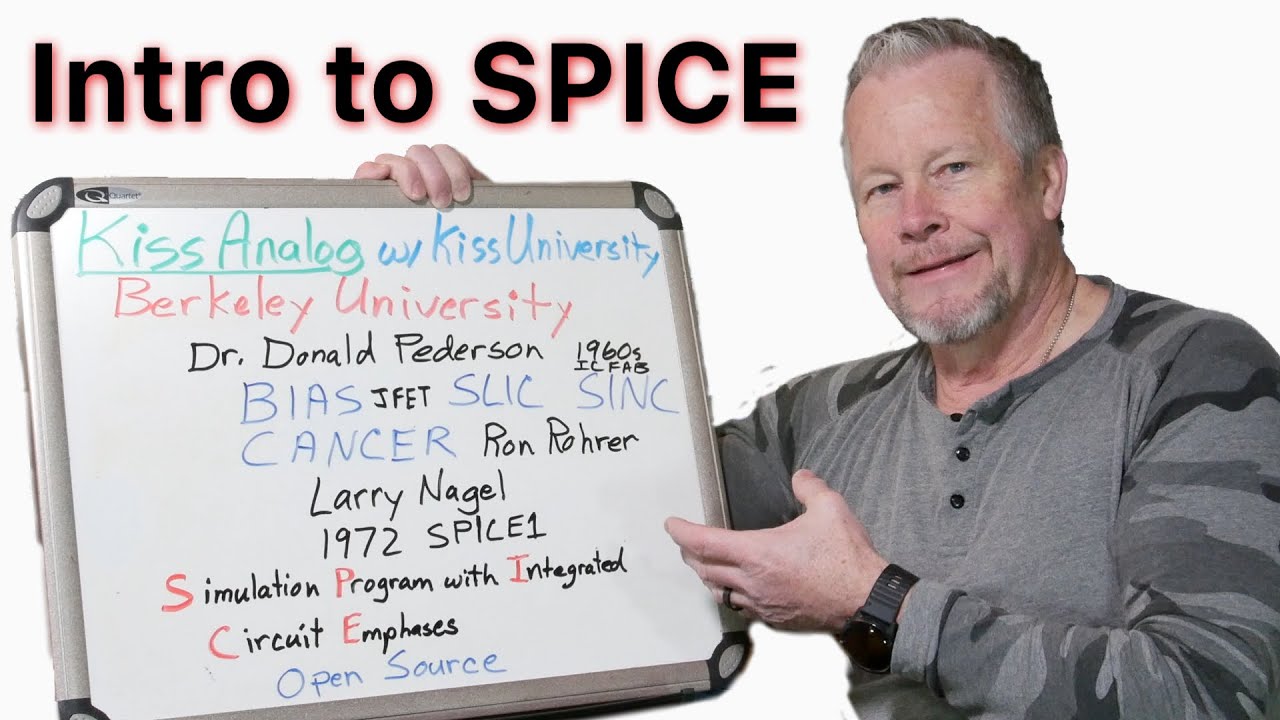 Intro to SPICE
Quartet
Kiss Analog w/ Kiss University
Berkeley University
Dr. Donald Pederson 1960s
IC FAB
BIAS JFET SLIC SINC
CANCER Ron Rohrer
Larry Nagel
1972 SPICE1
Simulation Program with Integrated
Circuit Emphases
Open Source